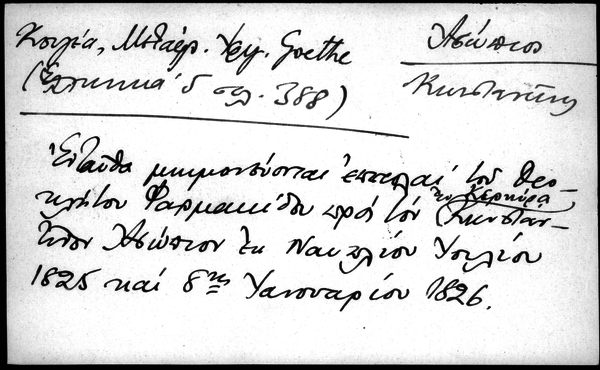 Κουγέα, Μπάερ. Χρ. Goethe
(Ἑλληνικά 5 σελ. 388)
Ἀσώπιος
Κωνσταντῖνος
Ἐνταῦθα μνημονεύονται ἐπιστολαί τοῦ Θεο-
κλήτου Φαρμακίδου πρός τόν ἐν Κερκύρᾳ Κωνσταν-
τῖνον Ἀσώπιον ἐκ Ναυπλίου Ἰουλίου
1825 καί 8ης Ἰανουαρίου 1826.